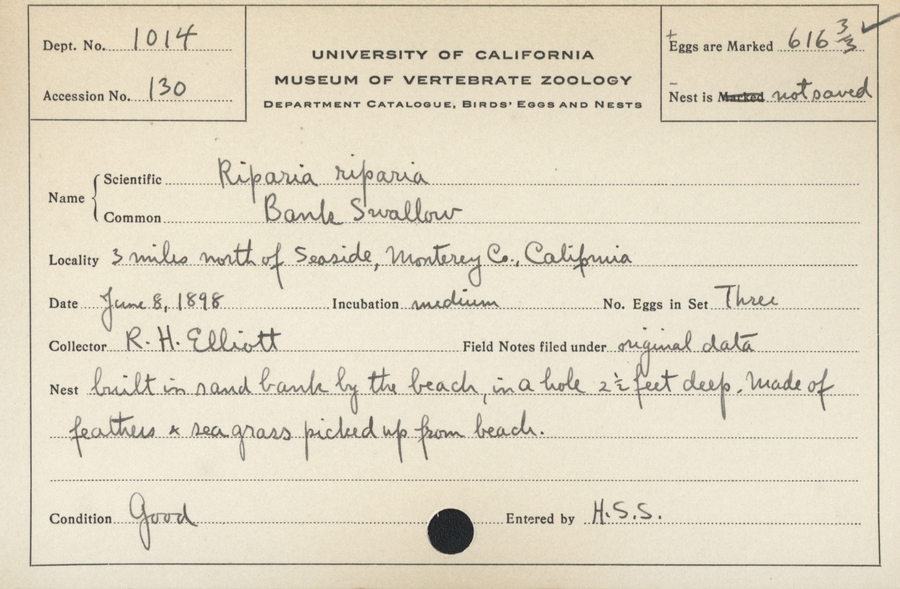 Dept. No. 1014
Accession No. 130
UNIVERSITY OF CALIFORNIA
MUSEUM OF VERTEBRATE ZOOLOGY
DEPARTMENT CATALOGUE, BIRDS' EGGS AND NESTS
+ Eggs are Marked 616 3/3 ✓
– Nest is Marked not saved
Name { Scientific Riparia riparia
Common Bank Swallow
Locality 3 miles north of Seaside, Monterey Co., California
Date June 8, 1898 Incubation medium No. Eggs in Set Three
Collector R. H. Elliott Field Notes filed under original data
Nest built in sand bank by the beach, in a hole 2½ feet deep. Made of
feathers & sea grass picked up from beach.
Condition Good Entered by H.S.S.